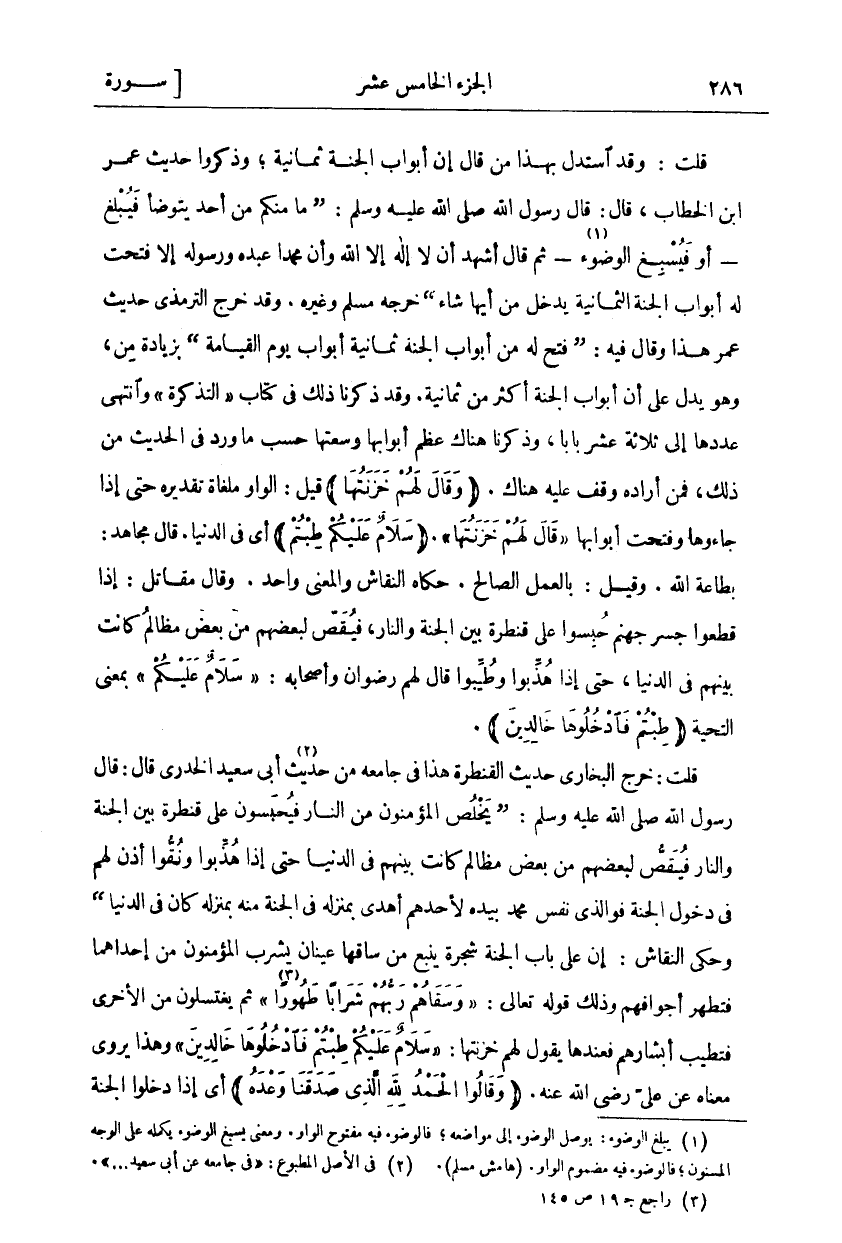 ٢٨٦ الجزء الخامس عشر [ ســورة
قلت : وقد ٱستدل بهــذا من قال إن أبواب الجنــة ثمـانية ؛ وذكروا حديث عمــر
ابن الخطاب ، قال : قال رسول الله صلى الله عليــه وسلم : ” ما منكم من أحد يتوضأ فَيُبْلغ
— أو فَيُسْبِــغ الوضُوء (١) — ثم قال أشهد أن لا إله إلا الله وأن محمدا عبده ورسوله إلا فتحت
له أبواب الجنة الثمـانية يدخل من أيها شاء “ خرجه مسلم وغيره . وقد خرج الترمذى حديث
عمر هــذا وقال فيه : ” فتح له من أبواب الجنة ثمـانية أبواب يوم القيــامة “ بزيادة مِن ،
وهو يدل على أن أبواب الجنة أكثر من ثمانية . وقد ذكرنا ذلك فى كتاب « التذكرة » وٱنتهى
عددها إلى ثلاثة عشر بابا ، وذكرنا هناك عظم أبوابها وسعتها حسب ما ورد فى الحديث من
ذلك ، فمن أراده وقف عليه هناك . ﴿ وَقَالَ لَهُمْ خَزَنَتُهَا ﴾ قيل : الواو ملغاة تقديره حتى إذا
جاءوها وفتحت أبوابها « قَالَ لَهُمْ خَزَنَتُهَا » . ﴿ سَلَامٌ عَلَيْكُمْ طِبْتُمْ ﴾ أى فى الدنيا . قال مجاهد :
بطاعة الله . وقيــل : بالعمل الصالح . حكاه النقاش والمعنى واحد . وقال مقــاتل : إذا
قطعوا جسر جهنم حُبِسوا على قنطرة بين الجنة والنار ، فيُقَصّ لبعضهم من بعض مظالمُ كانت
بينهم فى الدنيا ، حتى إذا هُذِّبوا وطُيِّبوا قال لهم رضوان وأصحابه : « سَلَامٌ عَلَيْــكُمْ » بمعنى
التحية ﴿ طِبْتُمْ فَٱدْخُلُوهَا خَالِدِينَ ﴾ .
قلت : خرج البخارى حديث القنطرة هذا فى جامعه من حديث (٢) أبى سعيد الخدرى قال : قال
رسول الله صلى الله عليه وسلم : ” يَخْلُص المؤمنون من النــار فيُحبَسون على قنطرة بين الجنة
والنار فيُقَصُّ لبعضهم من بعض مظالم كانت بينهم فى الدنيــا حتى إذا هُذِّبوا ونُقُّوا أذن لهم
فى دخول الجنة فوالذى نفس محمد بيده لأحدهم أهدى بمنزله فى الجنة منه بمنزله كان فى الدنيا “
وحكى النقاش : إن على باب الجنة شجرة ينبع من ساقها عينان يشرب المؤمنون من إحداهما
فتطهر أجوافهم وذلك قوله تعالى : « وَسَقَاهُمْ رَبُّهُمْ شَرَابًا طَهُورًا (٣) » ثم يغتسلون من الأخرى
فتطيب أبشارهم فعندها يقول لهم خزنتها : « سَلَامٌ عَلَيْكُمْ طِبْتُمْ فَٱدْخُلُوهَا خَالِدِينَ » وهذا يروى
معناه عن علىّ رضى الله عنه . ﴿ وَقَالُوا الْحَمْدُ لِلهِ ٱلَّذِى صَدَقَنَا وَعْدَهُ ﴾ أى إذا دخلوا الجنة
(١) يبلغ الوضوء : يوصل الوضوء إلى مواضعه ؛ فالوضوء فيه مفتوح الواو . ومعنى يسبغ الوضوء يكمله على الوجه
المسنون ؛ فالوضوء فيه مضموم الواو . (هامش مسلم) . (٢) فى الأصل المطبوع : « فى جامعه عن أبى سعيد ... » .
(٣) راجع جـ ١٩ ص ١٤٥